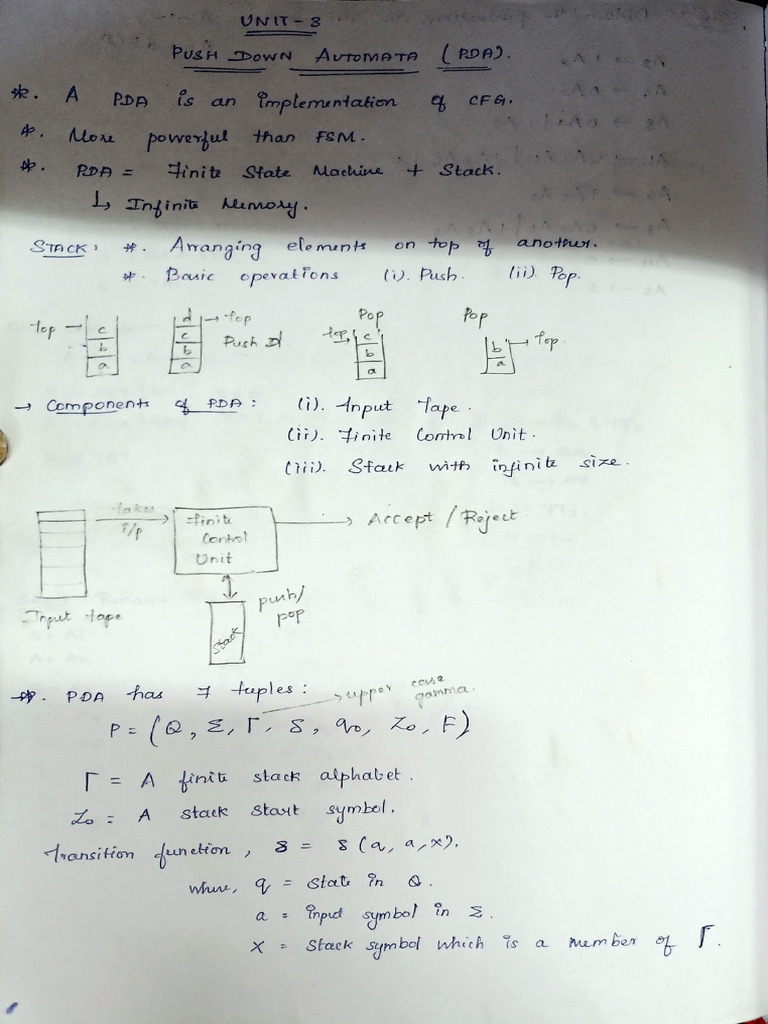 UNIT-3
PUSH DOWN AUTOMATA (PDA).
*. A PDA is an implementation of CFG.
*. More powerful than FSM.
*. PDA = Finite State Machine + Stack.
↳ Infinite Memory.
STACK: *. Arranging elements on top of another.
*. Basic operations (i). Push. (ii). Pop.
Top → c b a
d → top c b a Push d
Pop top → c b a
Pop b → Top a
→ Components of PDA: (i). Input Tape.
(ii). Finite Control Unit.
(iii). Stack with infinite size.
takes i/p
Finite Control Unit
→ Accept / Reject
Input tape
push/ pop
Stack
*. PDA has 7 tuples: → upper case gamma.
P = (Q, Σ, Γ, δ, q0, Z0, F)
Γ = A finite stack alphabet.
Z0 = A stack start symbol.
Transition function, δ = δ (q, a, x).
where, q = state in Q.
a = input symbol in Σ.
X = Stack symbol which is a member of Γ.